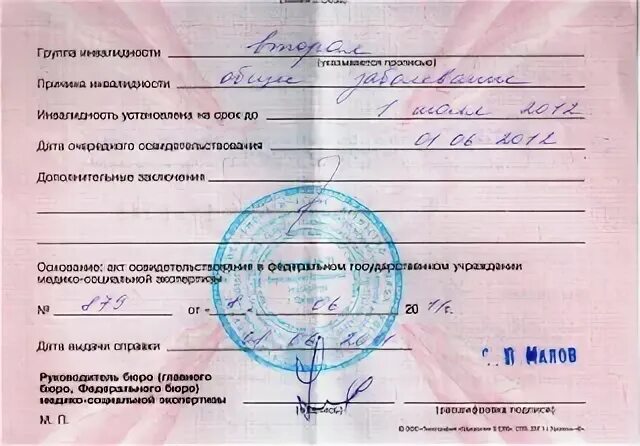 Группа инвалидности вторая
(указывается прописью)
Причина инвалидности общее заболевание
Инвалидность установлена на срок до 1 июля 2012
Дата очередного освидетельствования 01 06 2012
Дополнительные заключения
Основание: акт освидетельствования в федеральном государственном учреждении
медико-социальной экспертизы
№ 879 от «8» 06 2011г.
Дата выдачи справки 06
П Малов
Руководитель бюро (главного
бюро, Федерального бюро)
медико-социальной экспертизы
(подпись) (расшифровка подписи)
М. П.